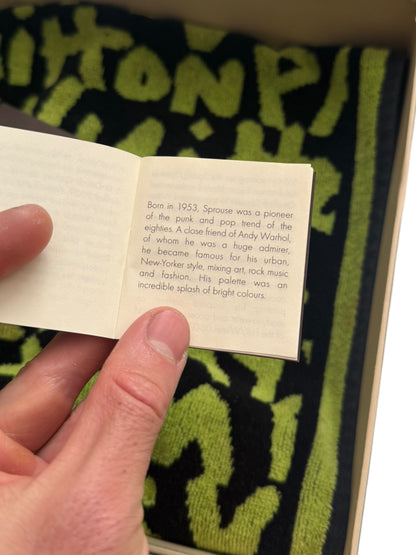 uitton p
Born in 1953, Sprouse was a pioneer
of the punk and pop trend of the
eighties. A close friend of Andy Warhol,
of whom he was a huge admirer,
he became famous for his urban,
New-Yorker style, mixing art, rock music
and fashion. His palette was an
incredible splash of bright colours.